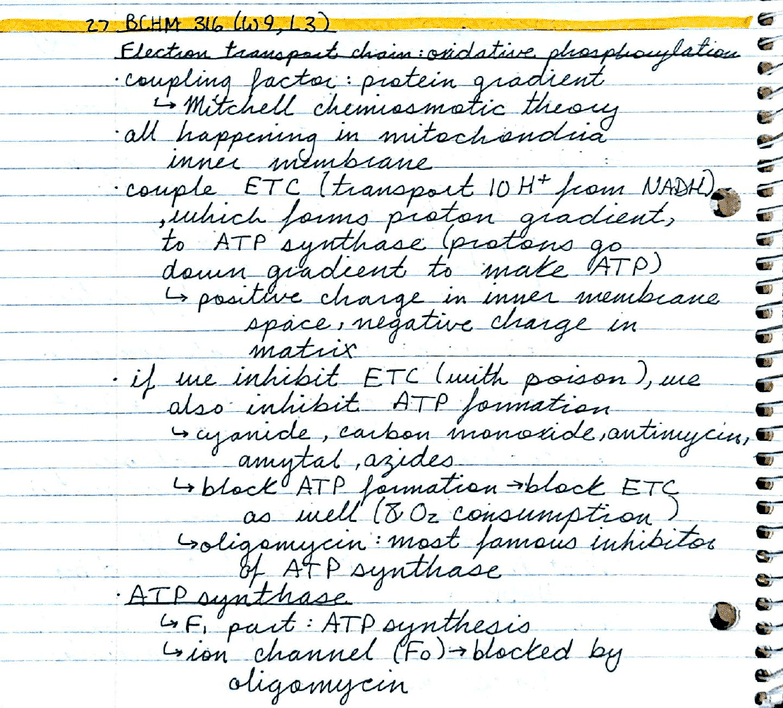 27 BCHM 316 (W9, L3)
Electron transport chain: oxidative phosphorylation
· coupling factor: protein gradient
↳ Mitchell chemiosmotic theory
· all happening in mitochondria
inner membrane
· couple ETC (transport 10 H⁺ from NADH)
, which forms proton gradient,
to ATP synthase (protons go
down gradient to make ATP)
↳ positive charge in inner membrane
space, negative charge in
matrix
· if we inhibit ETC (with poison), we
also inhibit ATP formation
↳ cyanide, carbon monoxide, antimycin,
amytal, azides
↳ block ATP formation → block ETC
as well (& O₂ consumption)
↳ oligomycin: most famous inhibitor
of ATP synthase
· ATP synthase
↳ F₁ part: ATP synthesis
↳ ion channel (F₀) → blocked by
oligomycin